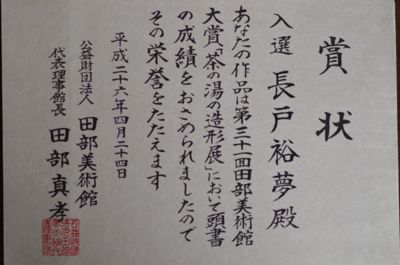 賞状
入選 長戸裕夢殿
あなたの作品は第三十一回田部美術館
大賞「茶の湯の造形展」において頭書
の成績をおさめられましたので
その栄誉をたたえます
平成二十六年四月二十四日
公益財団法人 田部美術館
代表理事館長 田部真孝